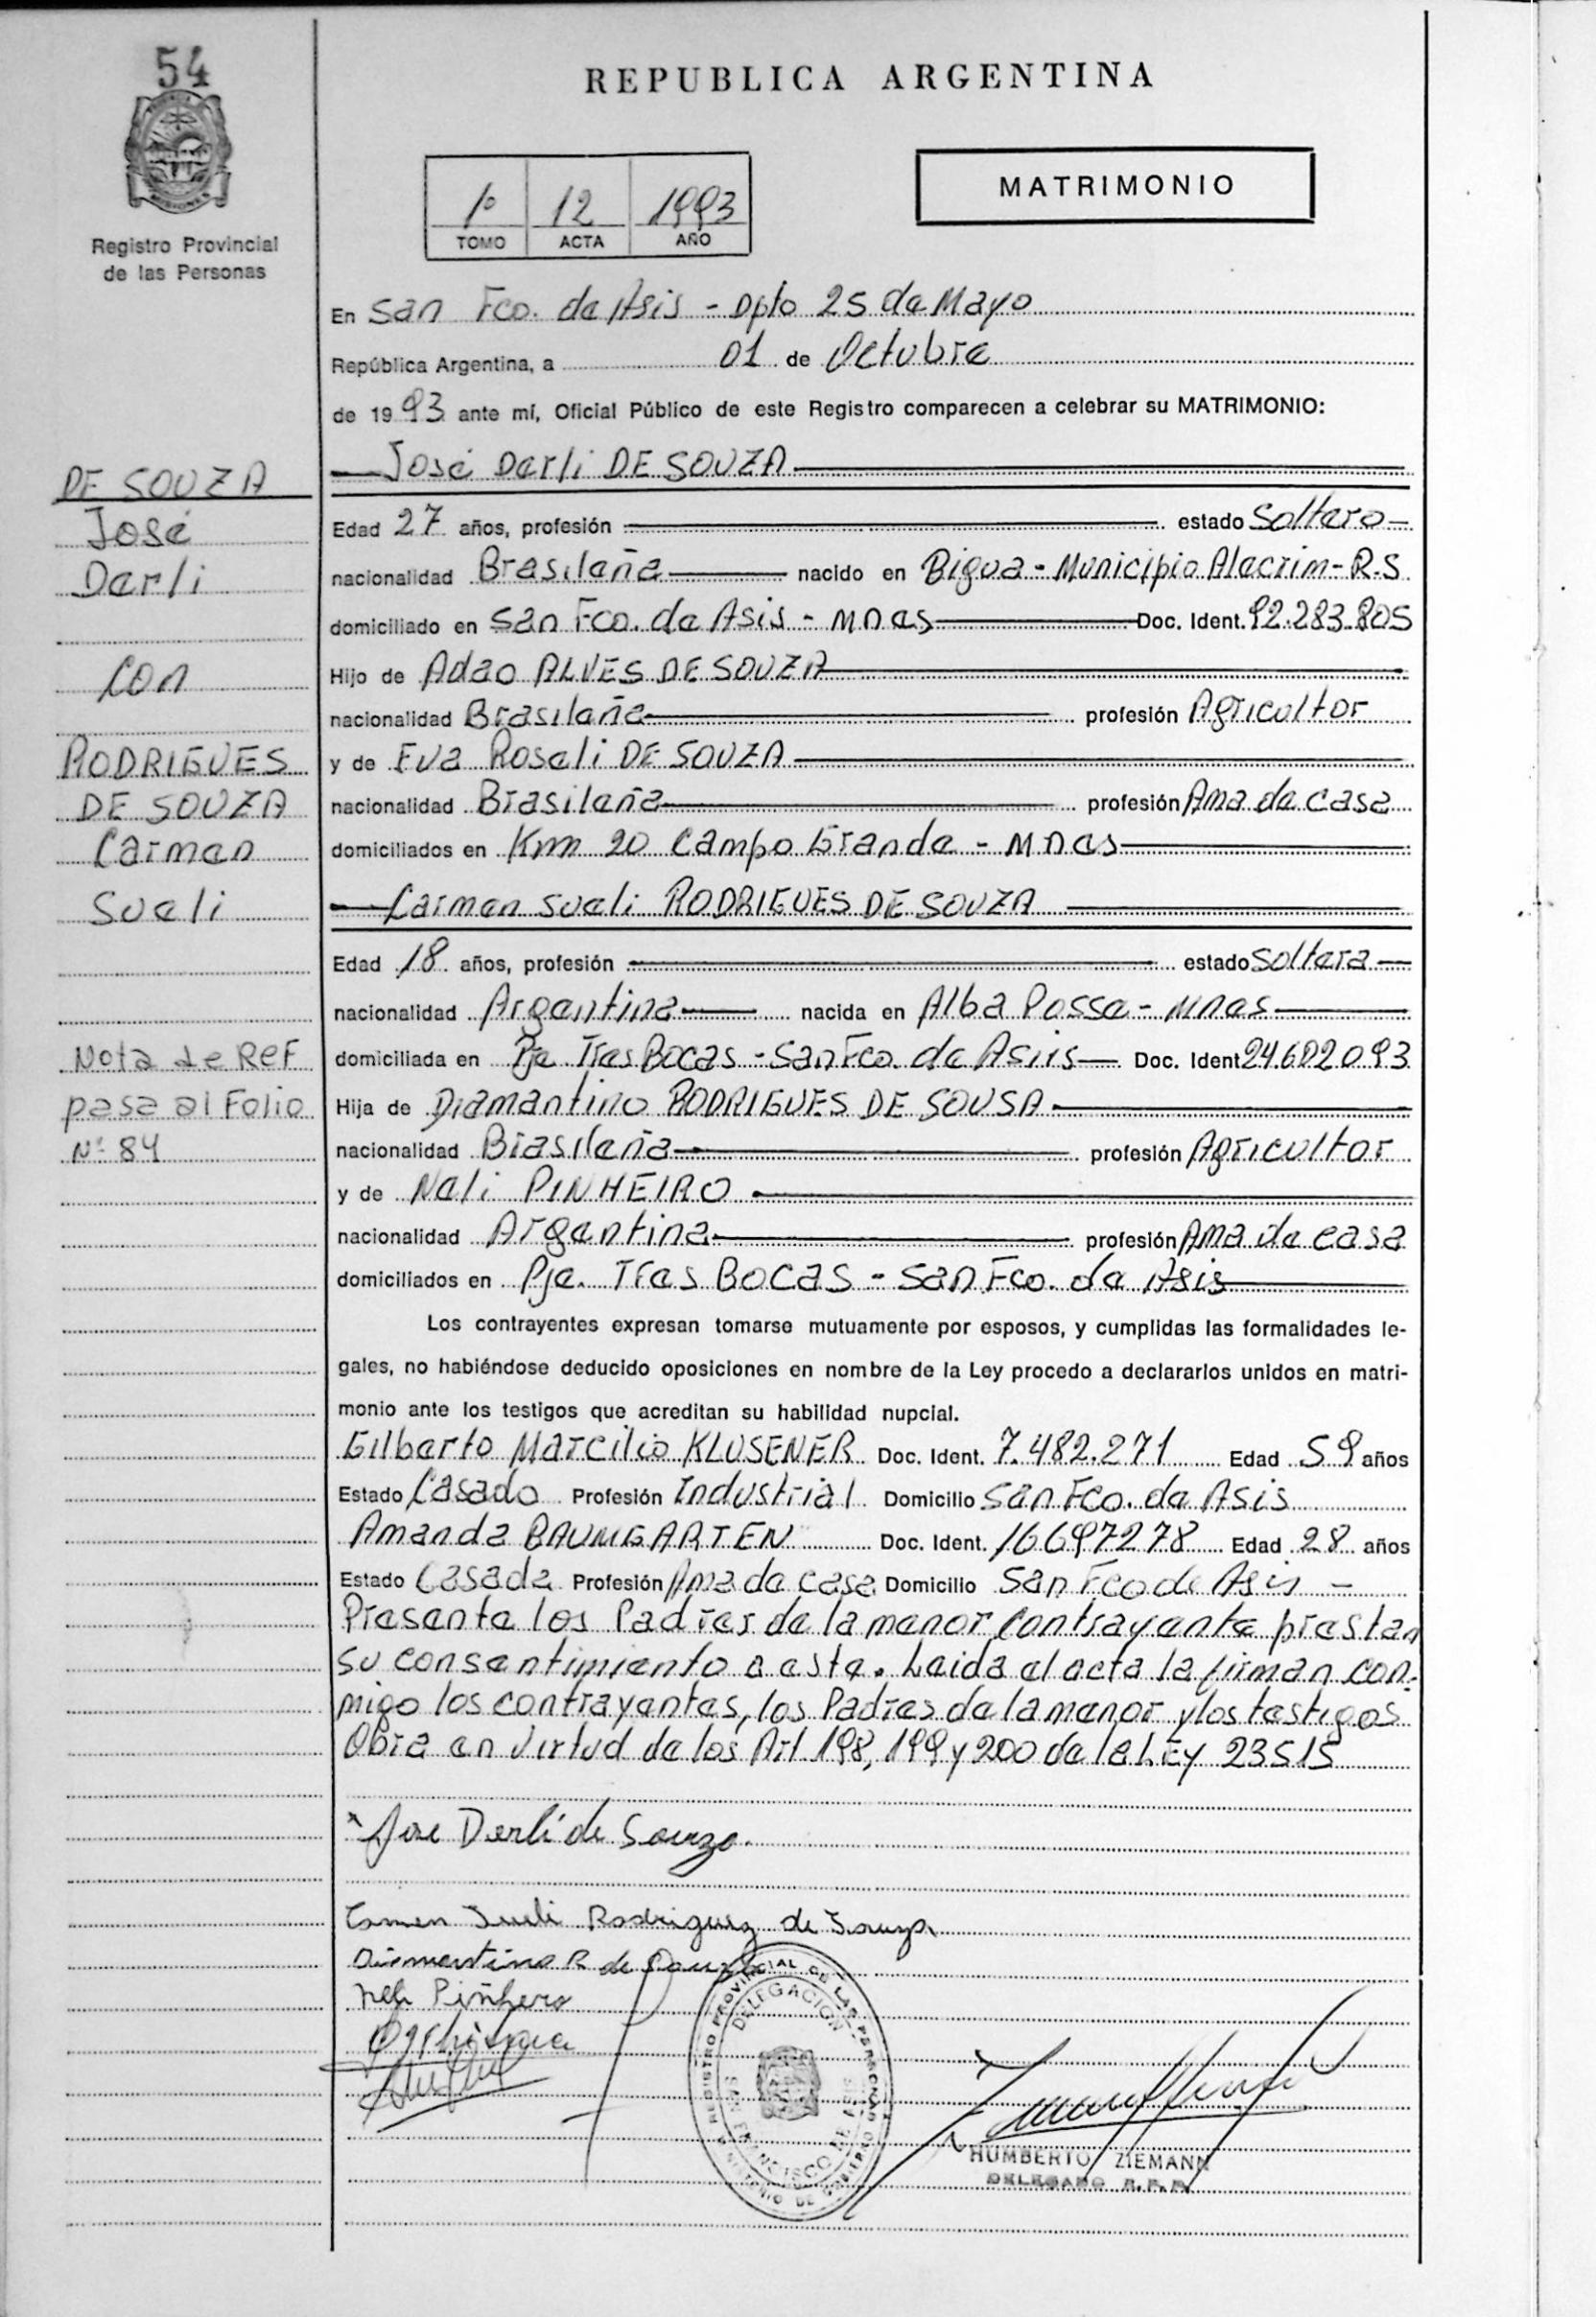 54
Registro Provincial
de las Personas
REPUBLICA ARGENTINA
1º 12 1993
TOMO ACTA AÑO
MATRIMONIO
En San Fco. de Asis - Dpto 25 de Mayo
República Argentina, a 01 de Octubre
de 1993 ante mí, Oficial Público de este Registro comparecen a celebrar su MATRIMONIO:
José Darli DE SOUZA
Edad 27 años, profesión estado Soltero
nacionalidad Brasileña nacido en Bigua - Municipio Alecrim - R.S
domiciliado en San Fco. de Asis - Mnes Doc. Ident. 92.283.805
Hijo de Adao ALVES DE SOUZA
nacionalidad Brasileña profesión Agricultor
y de Eva Roseli DE SOUZA
nacionalidad Brasileña profesión Ama de casa
domiciliados en Km 20 Campo Grande - Mnes
Carmen Sueli RODRIGUES DE SOUZA
Edad 18 años, profesión estado Soltera
nacionalidad Argentina nacida en Alba Posse - Mnes
domiciliada en Pje Tres Bocas - San Fco. de Asiis Doc. Ident 24.602.093
Hija de Diamantino RODRIGUES DE SOUSA
nacionalidad Brasileña profesión Agricultor
y de Neli PINHEIRO
nacionalidad Argentina profesión Ama de casa
domiciliados en Pje. Tres BOCAS - San Fco. de Asis
Los contrayentes expresan tomarse mutuamente por esposos, y cumplidas las formalidades le-
gales, no habiéndose deducido oposiciones en nombre de la Ley procedo a declararlos unidos en matri-
monio ante los testigos que acreditan su habilidad nupcial.
Gilberto Marcilio KLUSENER Doc. Ident. 7.482.271 Edad 59 años
Estado Casado Profesión Industrial Domicilio San Fco. de Asis
Amanda BAUMGARTEN Doc. Ident. 16697278 Edad 28 años
Estado Casada Profesión Ama de casa Domicilio San Fco de Asis -
Presente los Padres de la menor contrayente prestan
su consentimiento a este. Leida el acta la firman con-
migo los contrayentes, los Padres de la menor y los testigos
Obra en virtud de los Art. 198, 199 y 200 de la LEy 23515
DE SOUZA
José
Darli
con
RODRIGUES
DE SOUZA
Carmen
Sueli
Nota de REF
pasa al Folio
Nº 84
Jose Derli de Souza
Carmen Sueli Rodriguez de Souza
Diamantino R de Souza
Neli Piñhero
REGISTRO PROVINCIAL DE LAS PERSONAS
DELEGACION
SAN FRANCISCO DE ASIS
MINISTERIO DE GOBIERNO
HUMBERTO ZIEMANN
DELEGADO R.P.P.